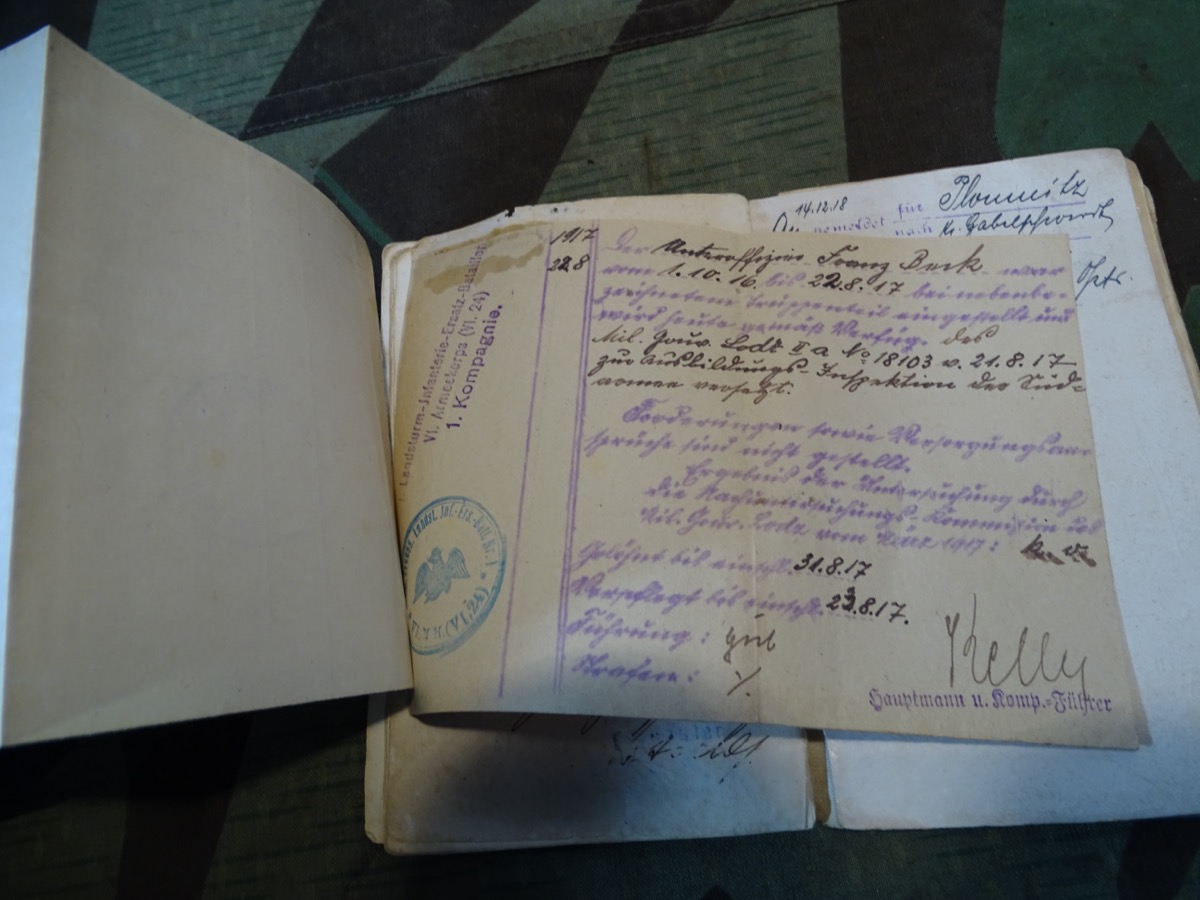 14.12.18
für Plomnitz
nach Kr. Habelschwerdt
Landsturm-Infanterie-Ersatz-Bataillon
VI. Armeekorps (VI. 24)
1. Kompagnie.
1917
22.8
Der Unteroffizier Franz Beck war
vom 1.10.16. bis 22.8.17 bei nebenbe-
zeichnetem Truppenteil eingestellt und
wird heute gemäß Verfüg. des
Mil. Gouv. Lodz II a No 18103 v. 21.8.17
zur Ausbildungs-Inspektion der Süd=
armee versetzt.
Forderungen sowie Versorgungsan-
sprüche sind nicht gestellt.
Ergebnis der Untersuchung durch
die Nachuntersuchungs-Kommission des
Mil. Gouv. Lodz vom März 1917: k. v.
Gelöhnt bis einschl. 31.8.17
Verpflegt bis einschl. 23.8.17.
Führung: gut
Strafen: ./.
Landst. Inf.-Ers.-Batl. Nr. 1
(VI.24)
Kelly
Hauptmann u. Komp.-Führer